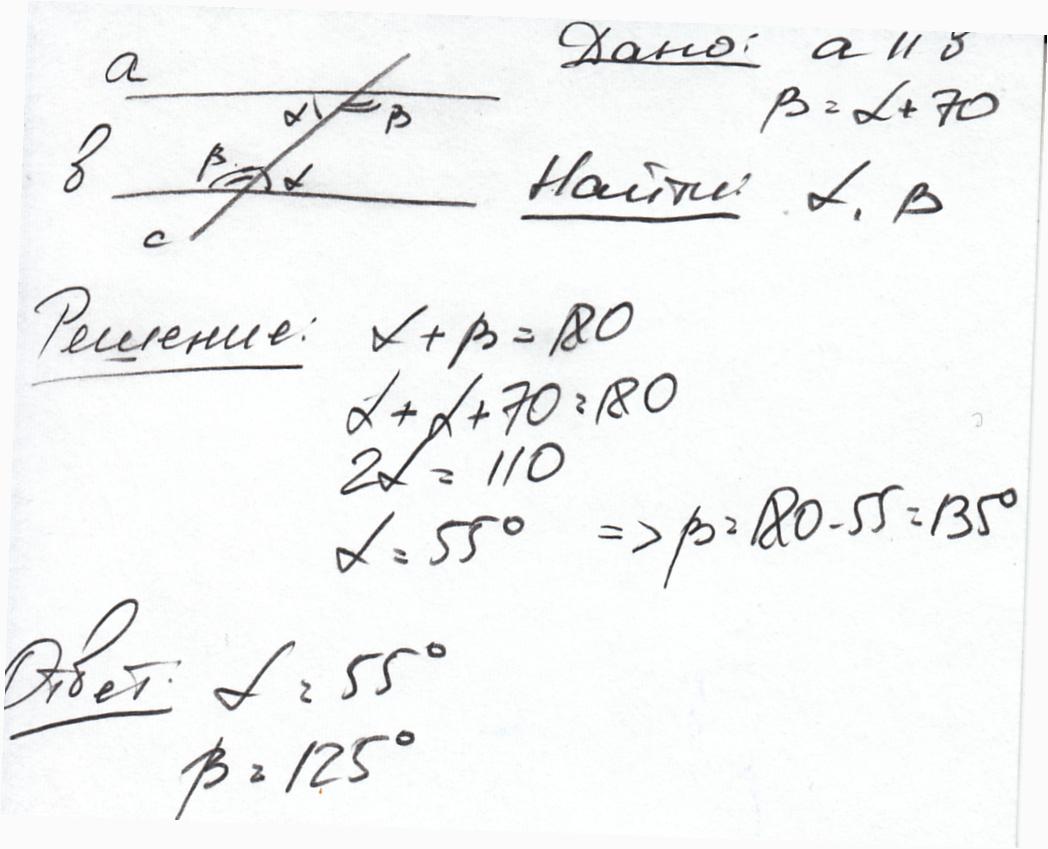 a
Дано: a || в
α β
β = α + 70
в
β α
Найти: α, β
c
Решение: α + β = 180
α + α + 70 = 180
2α = 110
α = 55° => β = 180 - 55 = 135°
Ответ: α = 55°
β = 125°